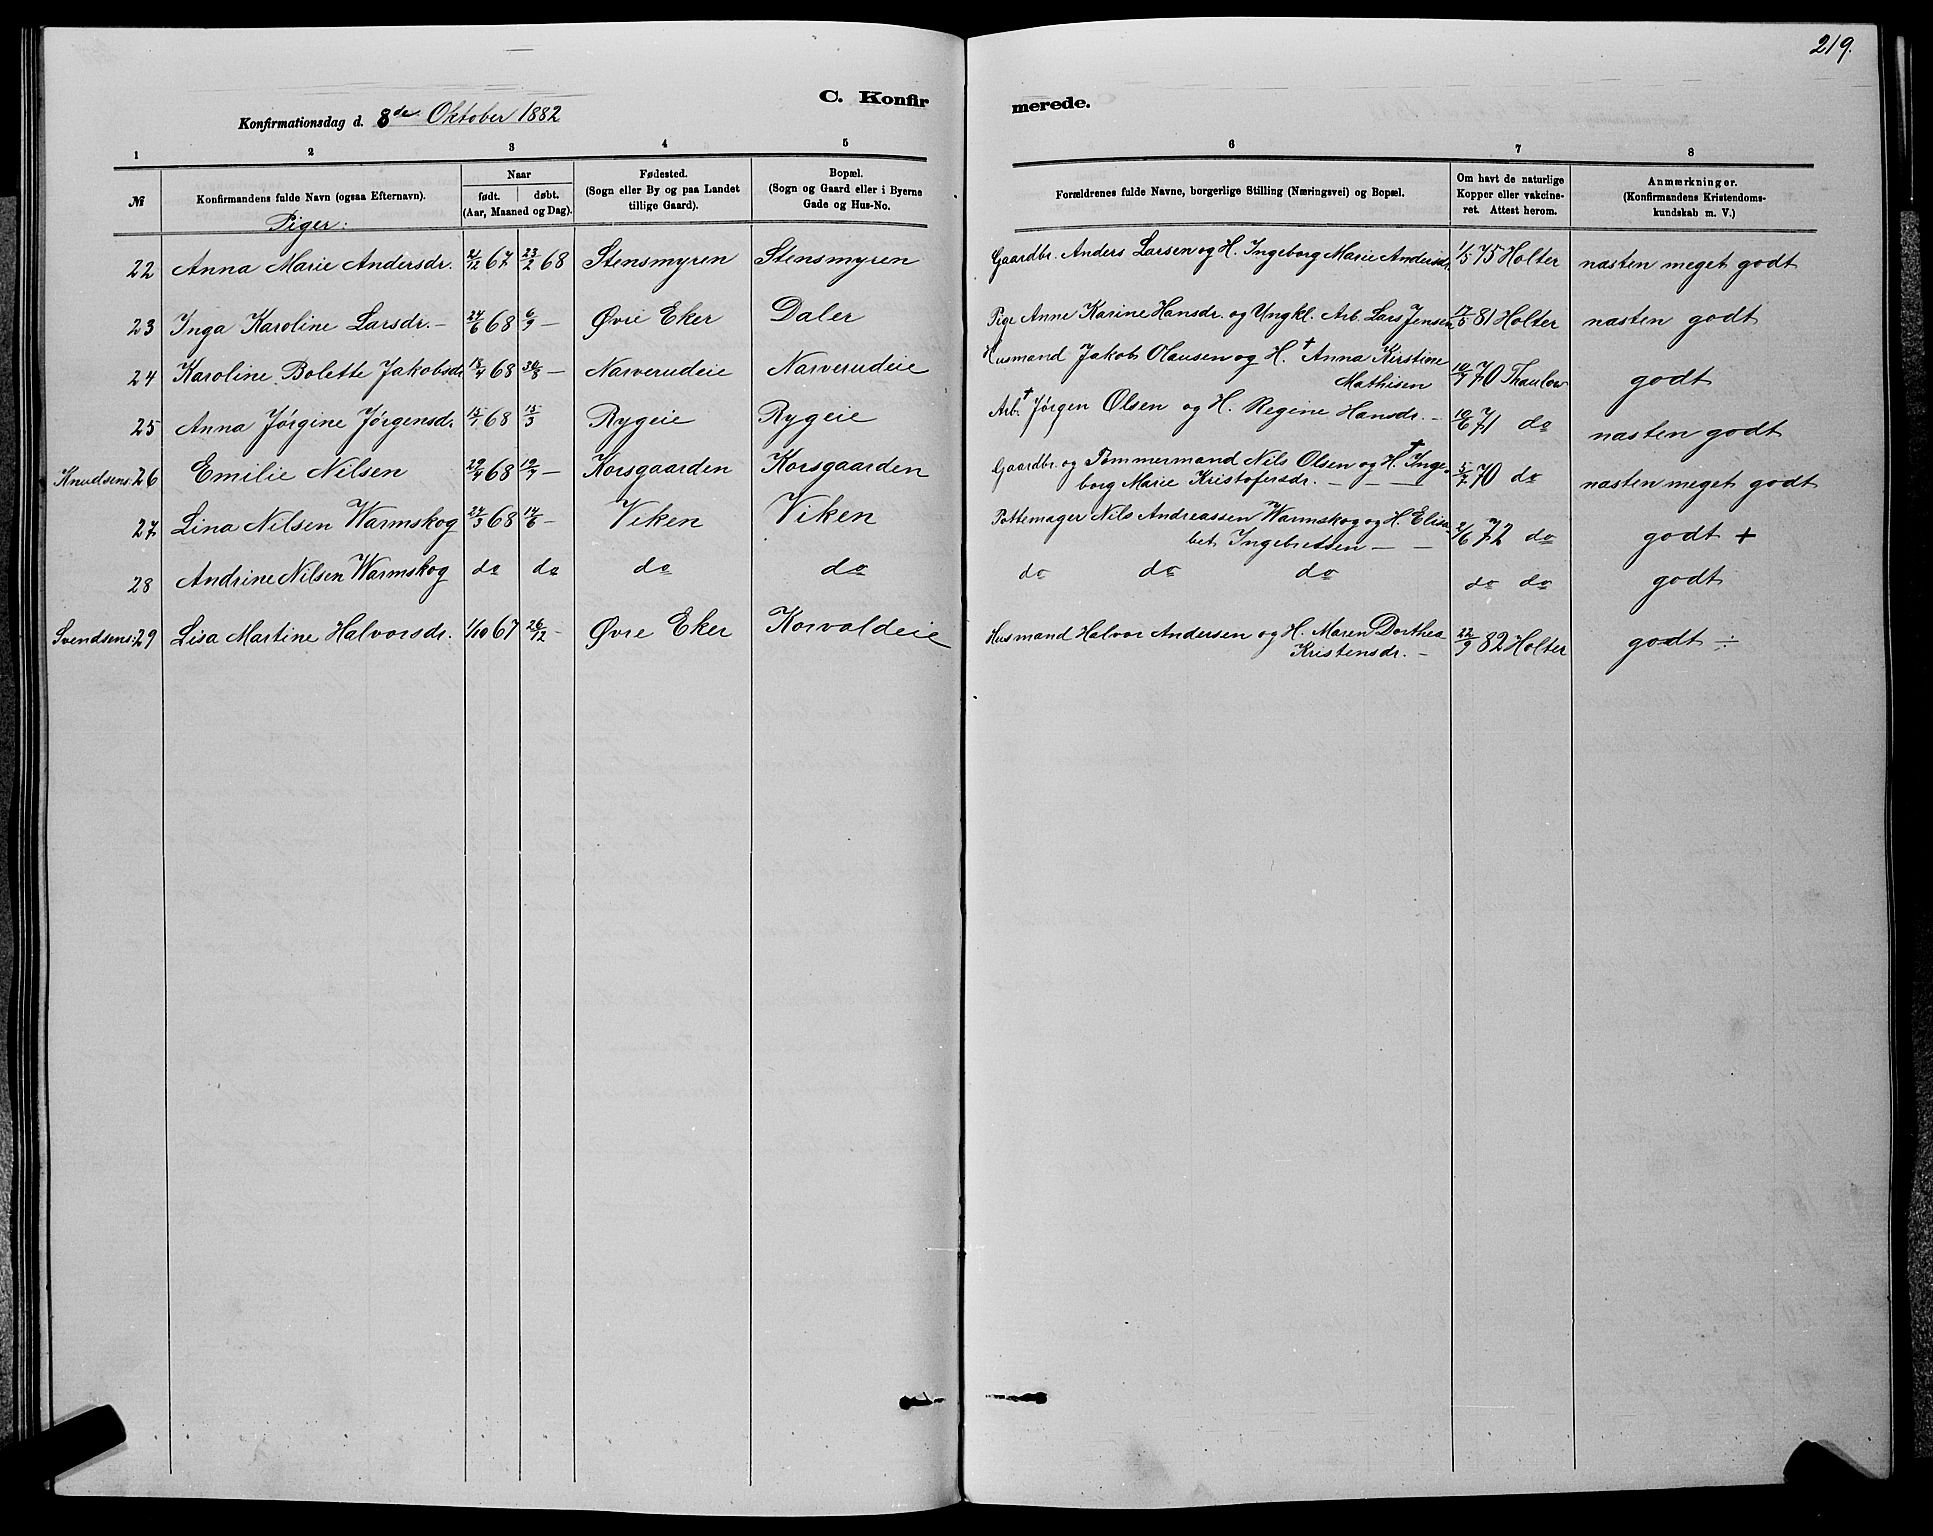 219.
C. Konfir merede.
Konfirmationsdag d. 8de Oktober 1882
1 2 3 4 5 6 7 8
№ Konfirmandens fulde Navn (ogsaa Efternavn). Naar født. døbt. (Aar, Maaned og Dag). Fødested. (Sogn eller By og paa Landet tillige Gaard). Bopæl. (Sogn og Gaard eller i Byerne Gade og Hus-No. Forældrenes fulde Navne, borgerlige Stilling (Næringsvei) og Bopæl. Om havt de naturlige Kopper eller vakcineret. Attest herom. Anmærkninger. (Konfirmandens Kristendomskundskab m. V.)
Piger:
22 Anna Marie Andersdr. 21/12 67 23/2 68 Stensmyren Stensmyren Gaardbr. Anders Larsen og H. Ingeborg Marie Andersdr. 1/5 75 Holter næsten meget godt
23 Inga Karoline Larsdr. – 24/6 68 6/9 – Øvre Eker Daler Pige Anne Karine Hansdr. og Ungkl. Arb. Lars Jensen 17/5 81 Holter næsten godt
24 Karoline Bolette Jakobsdr 13/4 68 30/8 – Narverudeie Narverudeie Husmand Jakob Olausen og H. † Anna Kirstine
Mathisen 10/7 70 Thaulow godt
25 Anna Jørgine Jørgensdr. 15/1 68 15/3 Rygeie Rygeie Arb. † Jørgen Olsen og H. Regine Hansdr. – 10/6 71 do næsten godt
Knudsens: 26 Emilie Nilsen 29/4 68 19/7 – Korsgaarden Korsgaarden Gaardbr. og Tømmermand Nils Olsen og H. † Inge-
borg Marie Kristofersdr. – – – 5/7 70 do næsten meget godt
27 Lina Nilsen Warmskog 24/3 68 14/6 – Viken Viken Pottemager Nils Andreassen Warmskog og H. Elisa
bet Ingebretsen – – 2/6 72 do godt +
28 Andrine Nilsen Warmskog do do do do do do do do do godt
Svendsens: 29 Lisa Martine Halvorsdr. 1/10 67 26/12 – Øvre Eker Korvaldeie Husmand Halvor Andersen og H. Maren Dorthea
Kristensdr. – 22/9 82 Holter godt ÷